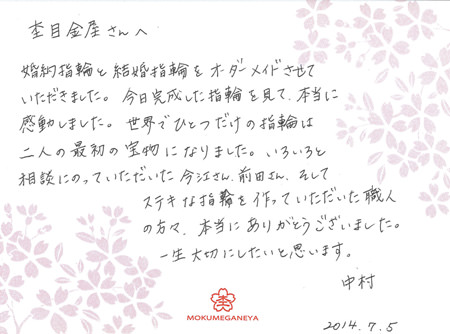 杢目金屋さんへ
婚約指輪と結婚指輪をオーダーメイドさせて
いただきました。今日完成した指輪を見て、本当に
感動しました。世界でひとつだけの指輪は
二人の最初の宝物になりました。いろいろと
相談にのっていただいた今江さん、前田さん、そして
ステキな指輪を作っていただいた職人
の方々、本当にありがとうございました。
一生大切にしたいと思います。
中村
MOKUMEGANEYA
2014.7.5